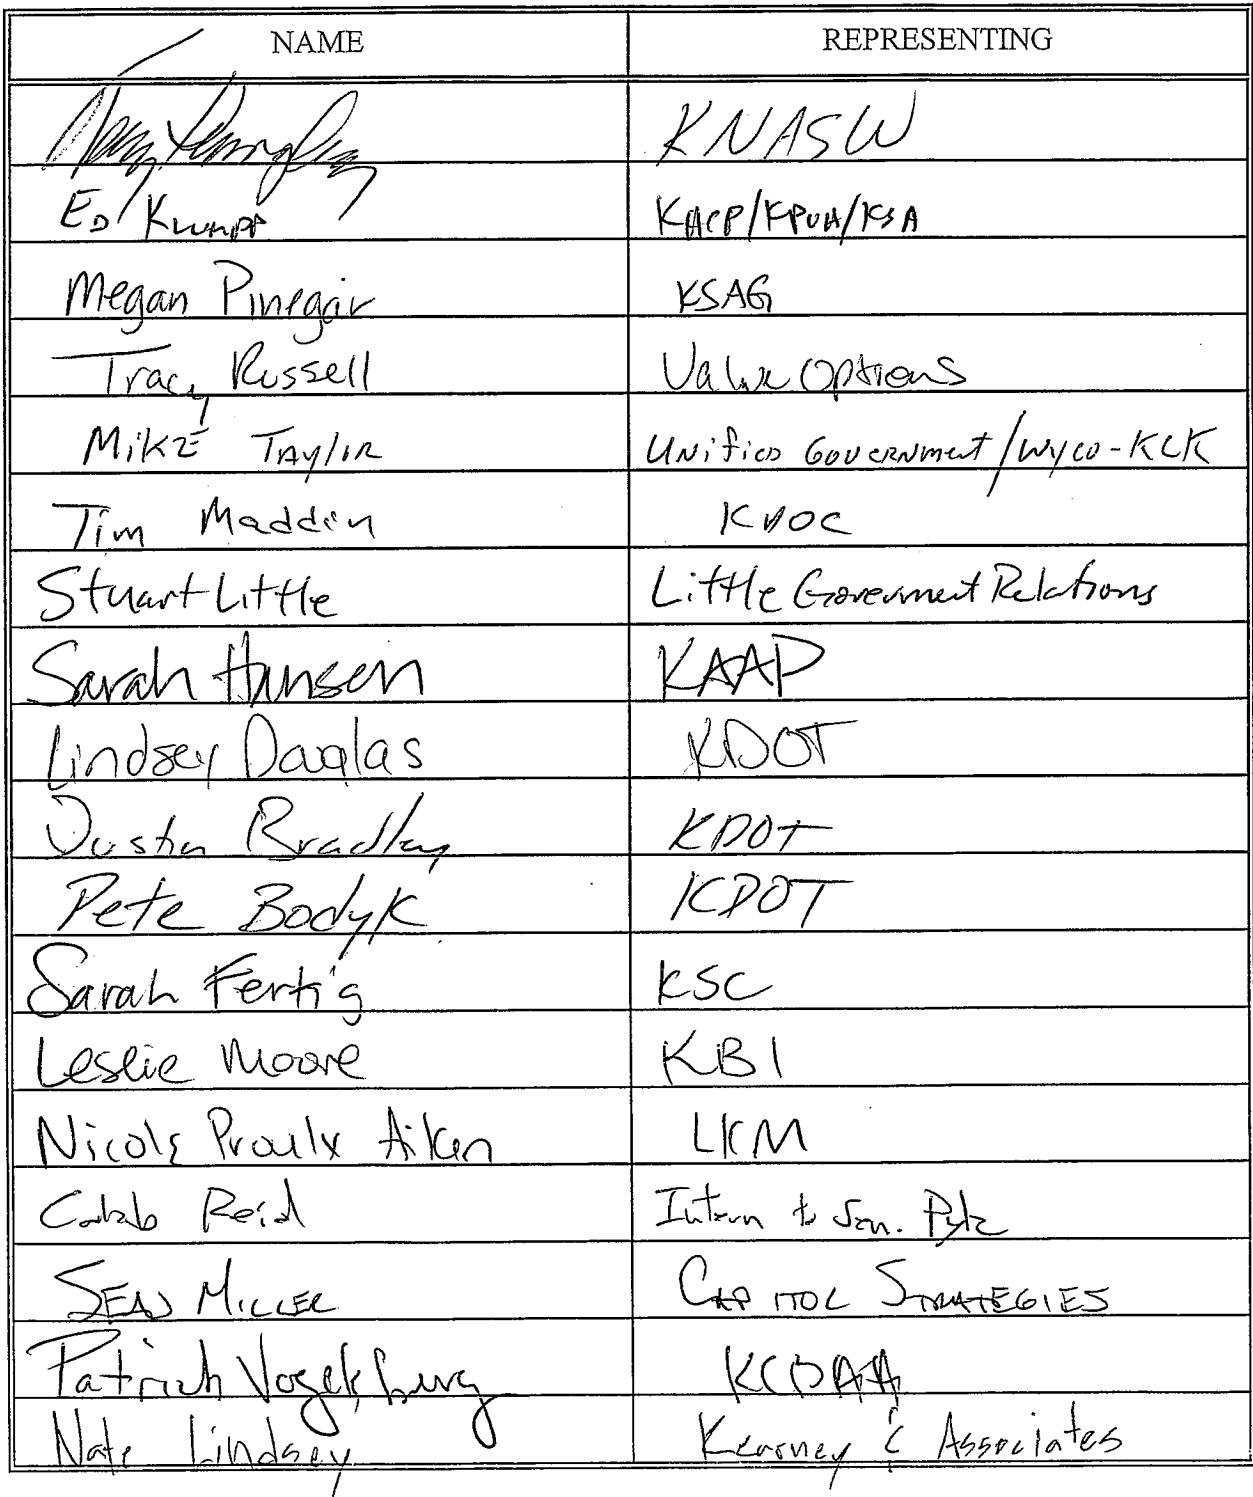 NAME REPRESENTING
KNASW
Ed Klumpp KACP/KPOA/KSA
Megan Pinegar KSAG
Tracy Russell Value Options
Mike Taylor Unified Government/WYCO-KCK
Tim Madden KDOC
Stuart Little Little Government Relations
Sarah Hansen KAAP
Lindsey Douglas KDOT
Dustin Bradley KDOT
Pete Bodyk KDOT
Sarah Fertig KSC
Leslie Moore KBI
Nicole Proulx Aiken LKM
Caleb Reid Intern to Sen. Pyle
Sean Miller CAPITOL STRATEGIES
Patrick Vogelsberg KCDAA
Nate Lindsey Kearney & Associates